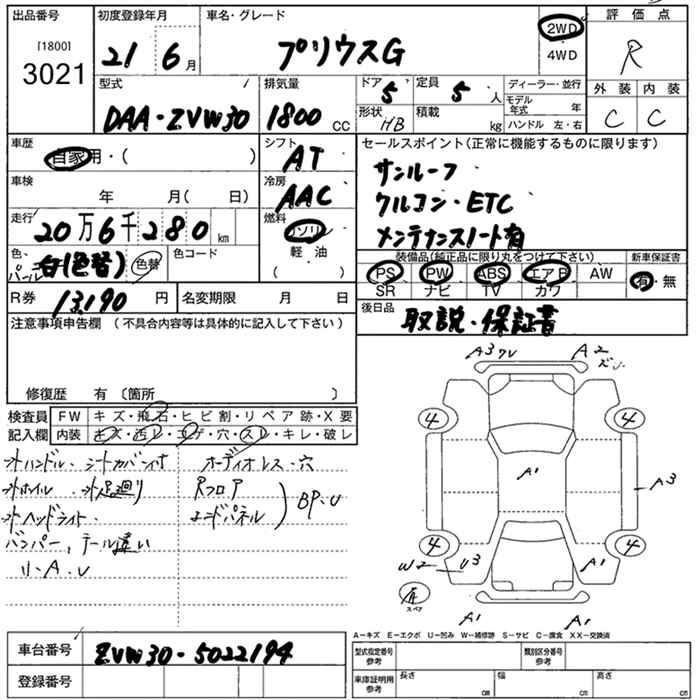 出品番号 初度登録年月 車名・グレード 評価点
[1800]
3021
21 6月 プリウスG 2WD R
4WD
型式 排気量 ドア 定員 ディーラー・並行 外装 内装
DAA・ZVW30 1800 CC 5 5人 モデル年式 年 C C
形状 HB 積載 kg ハンドル 左・右
車歴 シフト セールスポイント(正常に機能するものに限ります)
自家用・( ) AT サンルーフ
車検 冷房
年 月(日) AAC クルコン・ETC
走行 燃料
20万6千280km ガソリン メンテナンスノート有
色 色替 色コード 軽油 装備品(純正品に限り丸をつけて下さい) 新車保証書
パール白(色替) ( ) PS PW ABS エアB AW 有・無
SR ナビ TV カワ
R券 13,190円 名変期限 月 日 後日品
取説・保証書
注意事項申告欄 (不具合内容等は具体的に記入して下さい)
修復歴 有 〔箇所 〕
検査員 FW キズ・飛石・ヒビ割・リペア跡・X要
記入欄 内装 キズ・汚レ・コゲ・穴・スレ・キレ・破レ
オーディオレス・穴
Rフロア
エンドパネル BP・U
A3 A2
4 4
A1
A3
4 4
W2 U3 A1
スペア
A1 A1
A−キズ E−エクボ U−凹み W−補修跡 S−サビ C−腐食 XX−交換済
車台番号 ZVW30-5022194 型式指定番号 参考 類別区分番号 参考
登録番号 車庫証明用 参考 長さ cm 幅 cm 高さ cm